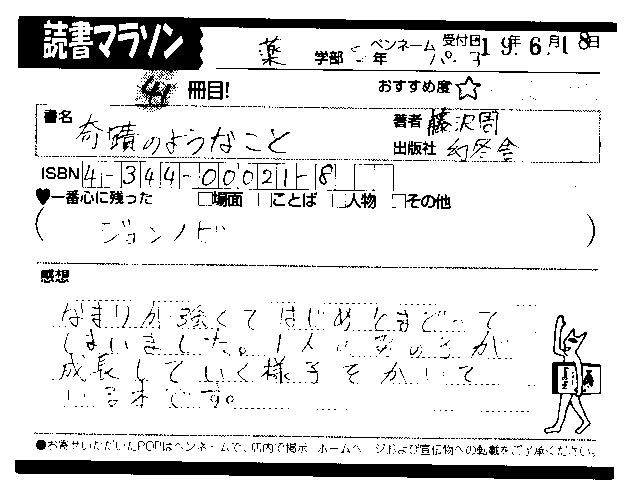 読書マラソン
薬 学部 年 ペンネーム パコ 受付日 19年6月18日
41 冊目! おすすめ度☆
書名 奇蹟のようなこと 著者 藤沢周
出版社 幻冬舎
ISBN 4-344-00021-8
♥一番心に残った □場面 □ことば □人物 □その他
( ジョンノビ )
感想
なまりが強くてはじめとまどって
しまいました。1人の女の子が
成長していく様子をかいて
いる本です。
●お寄せいただいたPOPはペンネームで、店内で掲示・ホームページおよび宣伝物への転載をご了承ください。